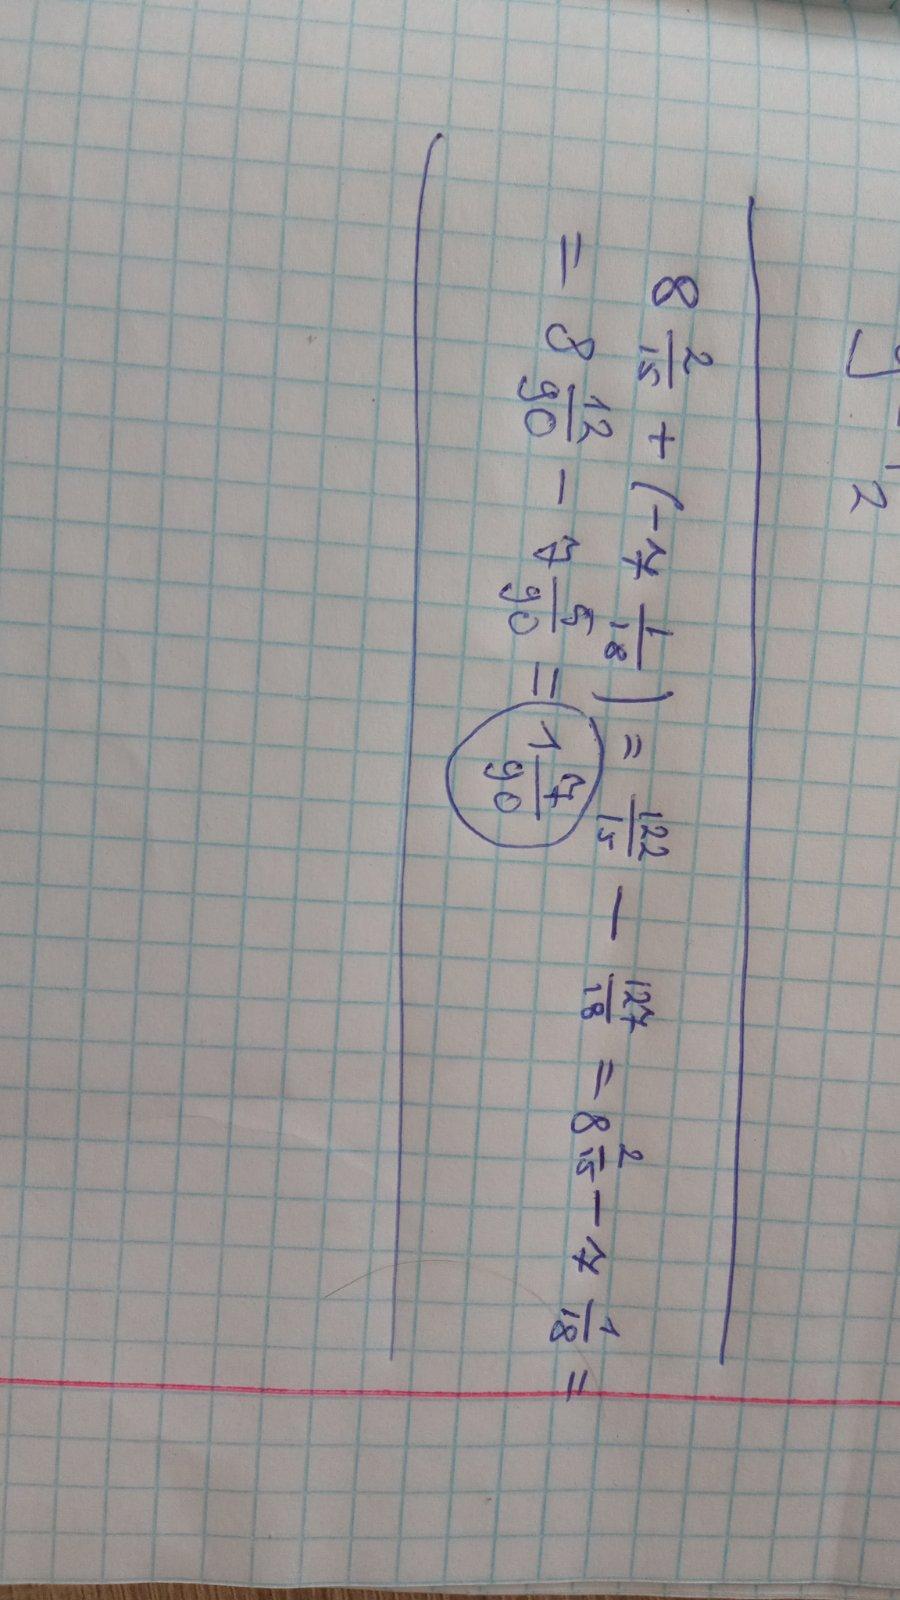 8 2/15 + (-7 1/18) = 122/15 - 127/18 = 8 2/15 - 7 1/18 =
= 8 12/90 - 7 5/90 = 1 7/90